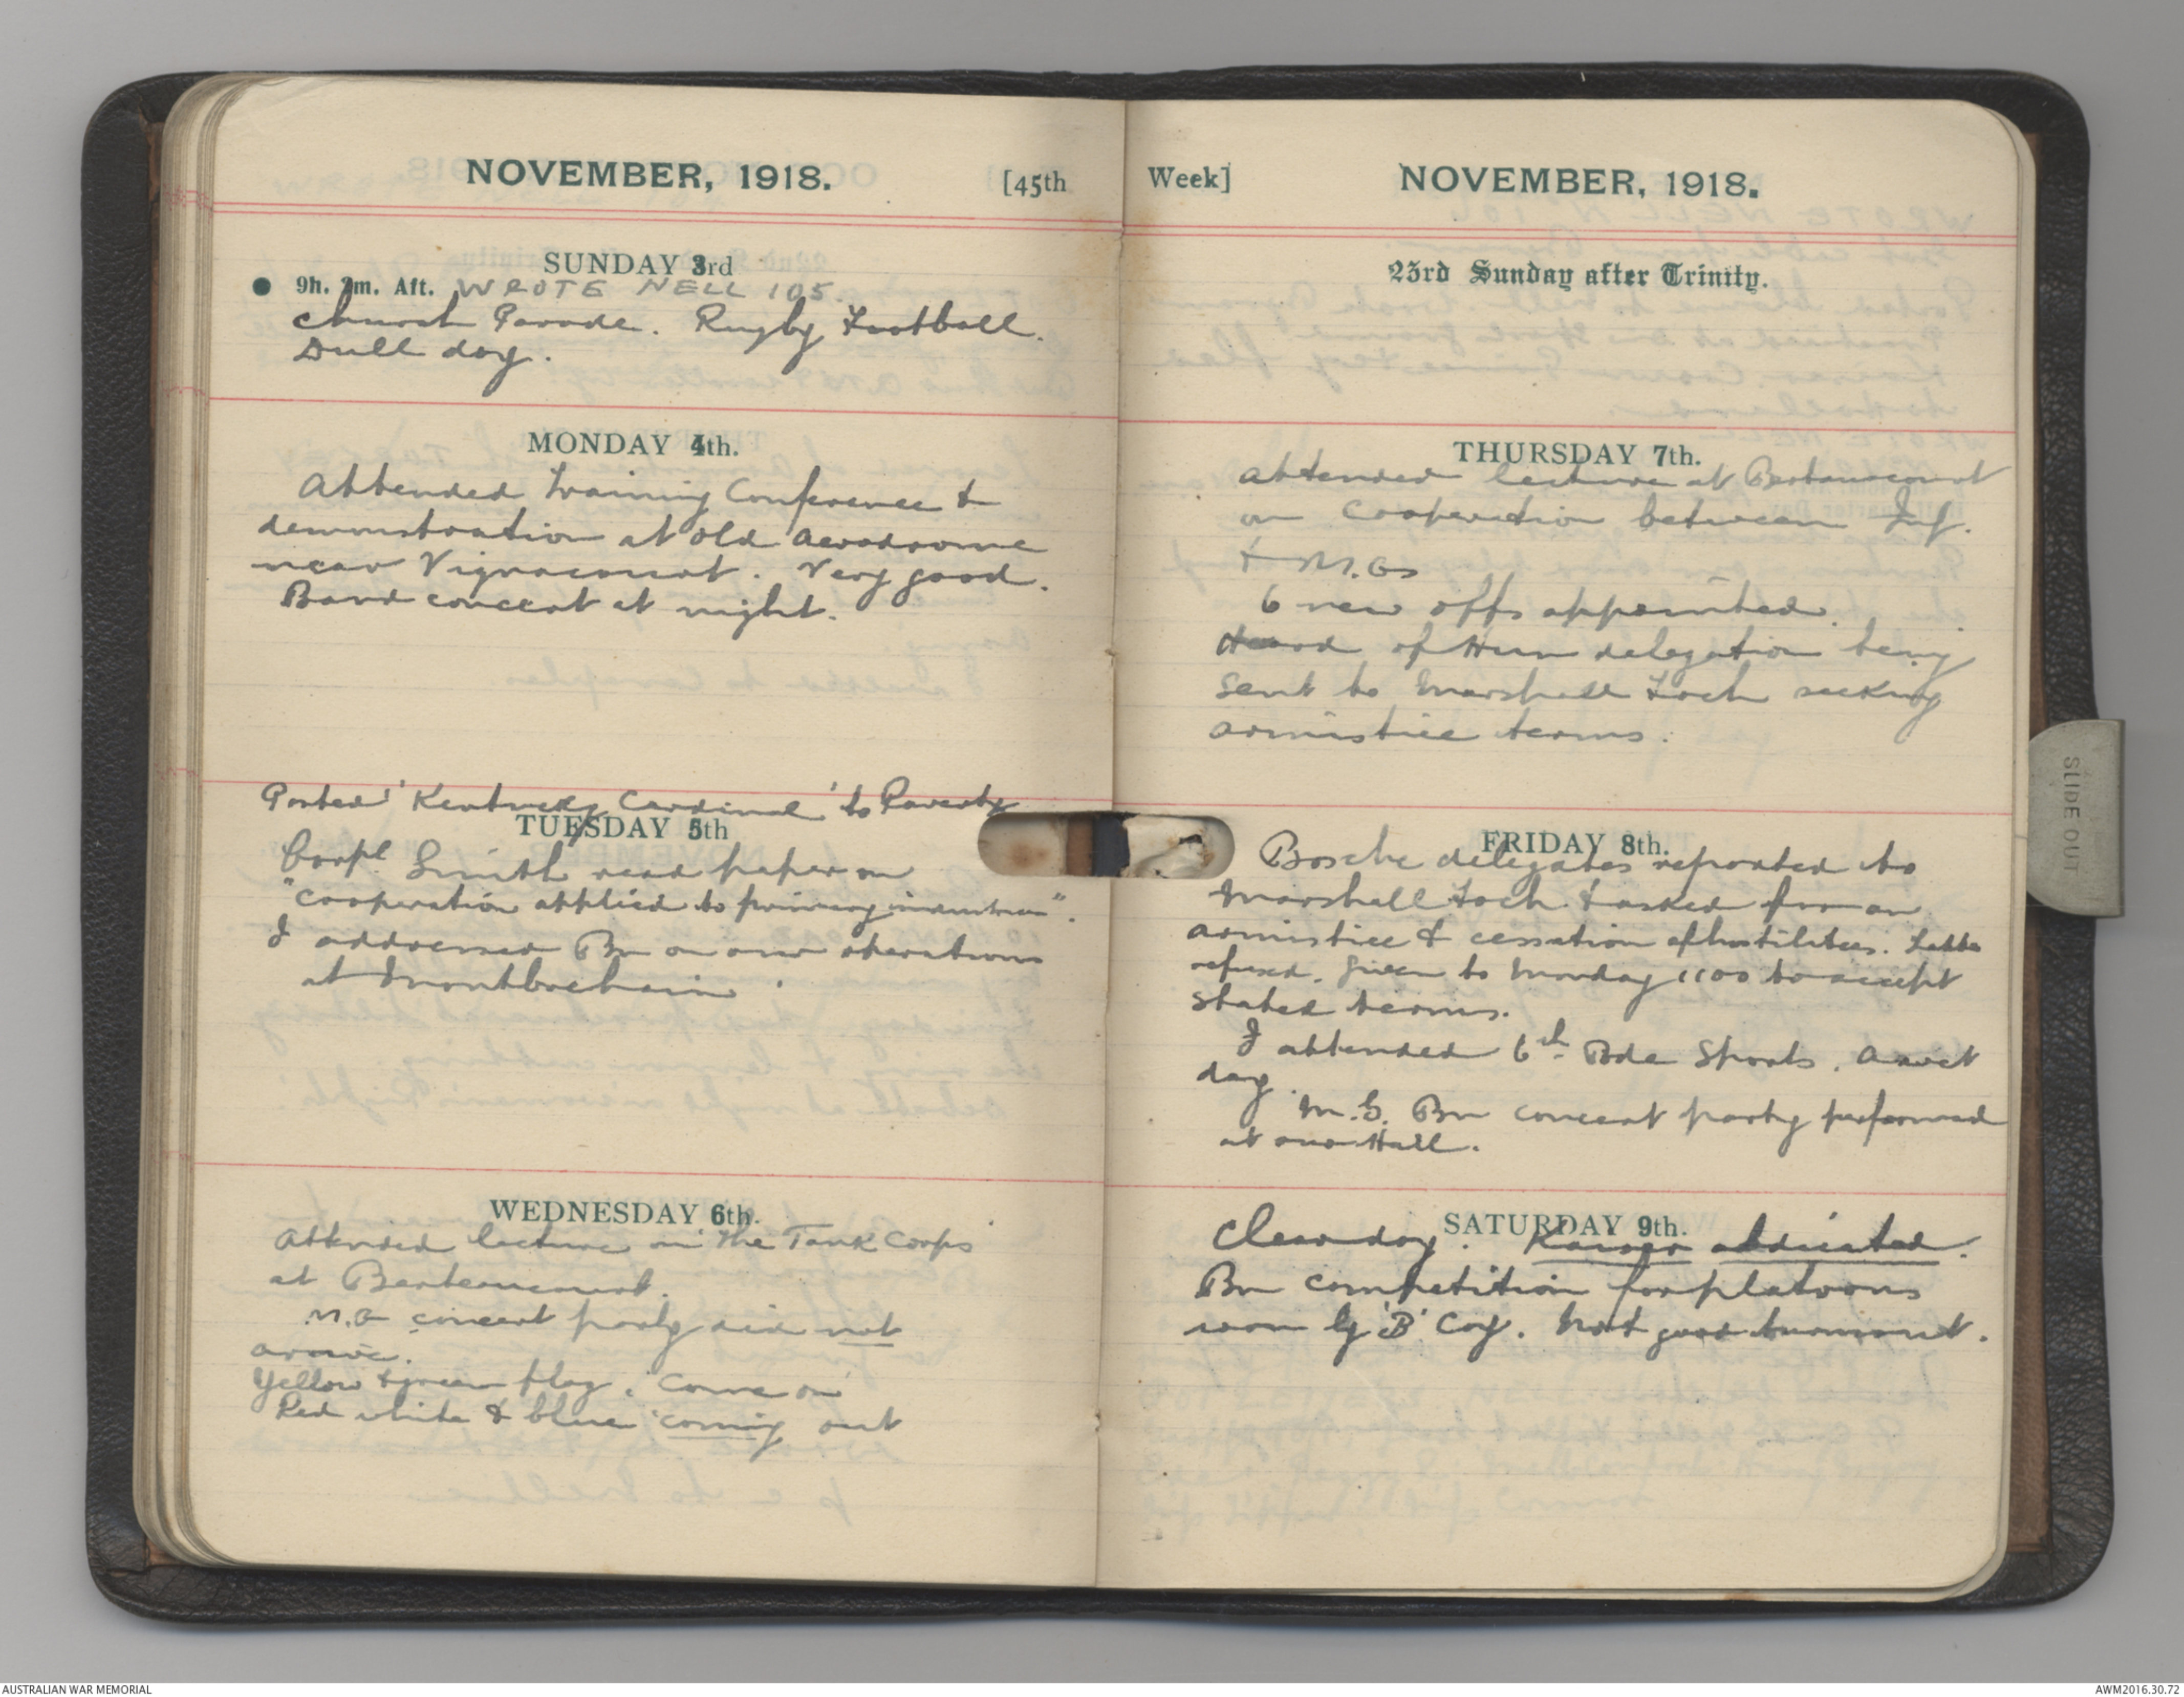 NOVEMBER, 1918. [45th
SUNDAY 3rd
● 9h. 2m. Aft. WROTE NELL 105.
Church Parade. Rugby Football.
Dull day.
MONDAY 4th.
Attended Training Conference &
demonstration at old aerodrome
near Vignacourt. Very good.
Band concert at night.
Posted 'Kentucky Cardinal' to
TUESDAY 5th
Corpl Smith read paper on
"Cooperation applied to primary industries".
I addressed Bn on our operations
at Montbrehain.
WEDNESDAY 6th.
Attended lecture on The Tank Corps
at Berteaucourt.
M.G concert party did not
arrive.
Yellow & green flag. 'Come on'
Red white & blue 'coming out
Week] NOVEMBER, 1918.
23rd Sunday after Trinity.
THURSDAY 7th.
Attended lecture at Bertaucourt
on Cooperation between Inf.
& M.Gs
6 new offs appointed.
Heard of Hun delegation being
sent to Marshall Foch seeking
armistice terms.
FRIDAY 8th.
Bosche delegates reported to
Marshall Foch & asked for an
armistice & cessation of hostilities. Latter
refused. Given to Monday 1100 to accept
stated terms.
I attended 6th Bde Sports. A wet
day.
M.G. Bn concert party performed
at our Hall.
SATURDAY 9th.
Clear day. Kaiser abdicated.
Bn competition for platoons
won by 'B' Coy. Not good turnout.
SLIDE OUT
AUSTRALIAN WAR MEMORIAL
AWM2016.30.72